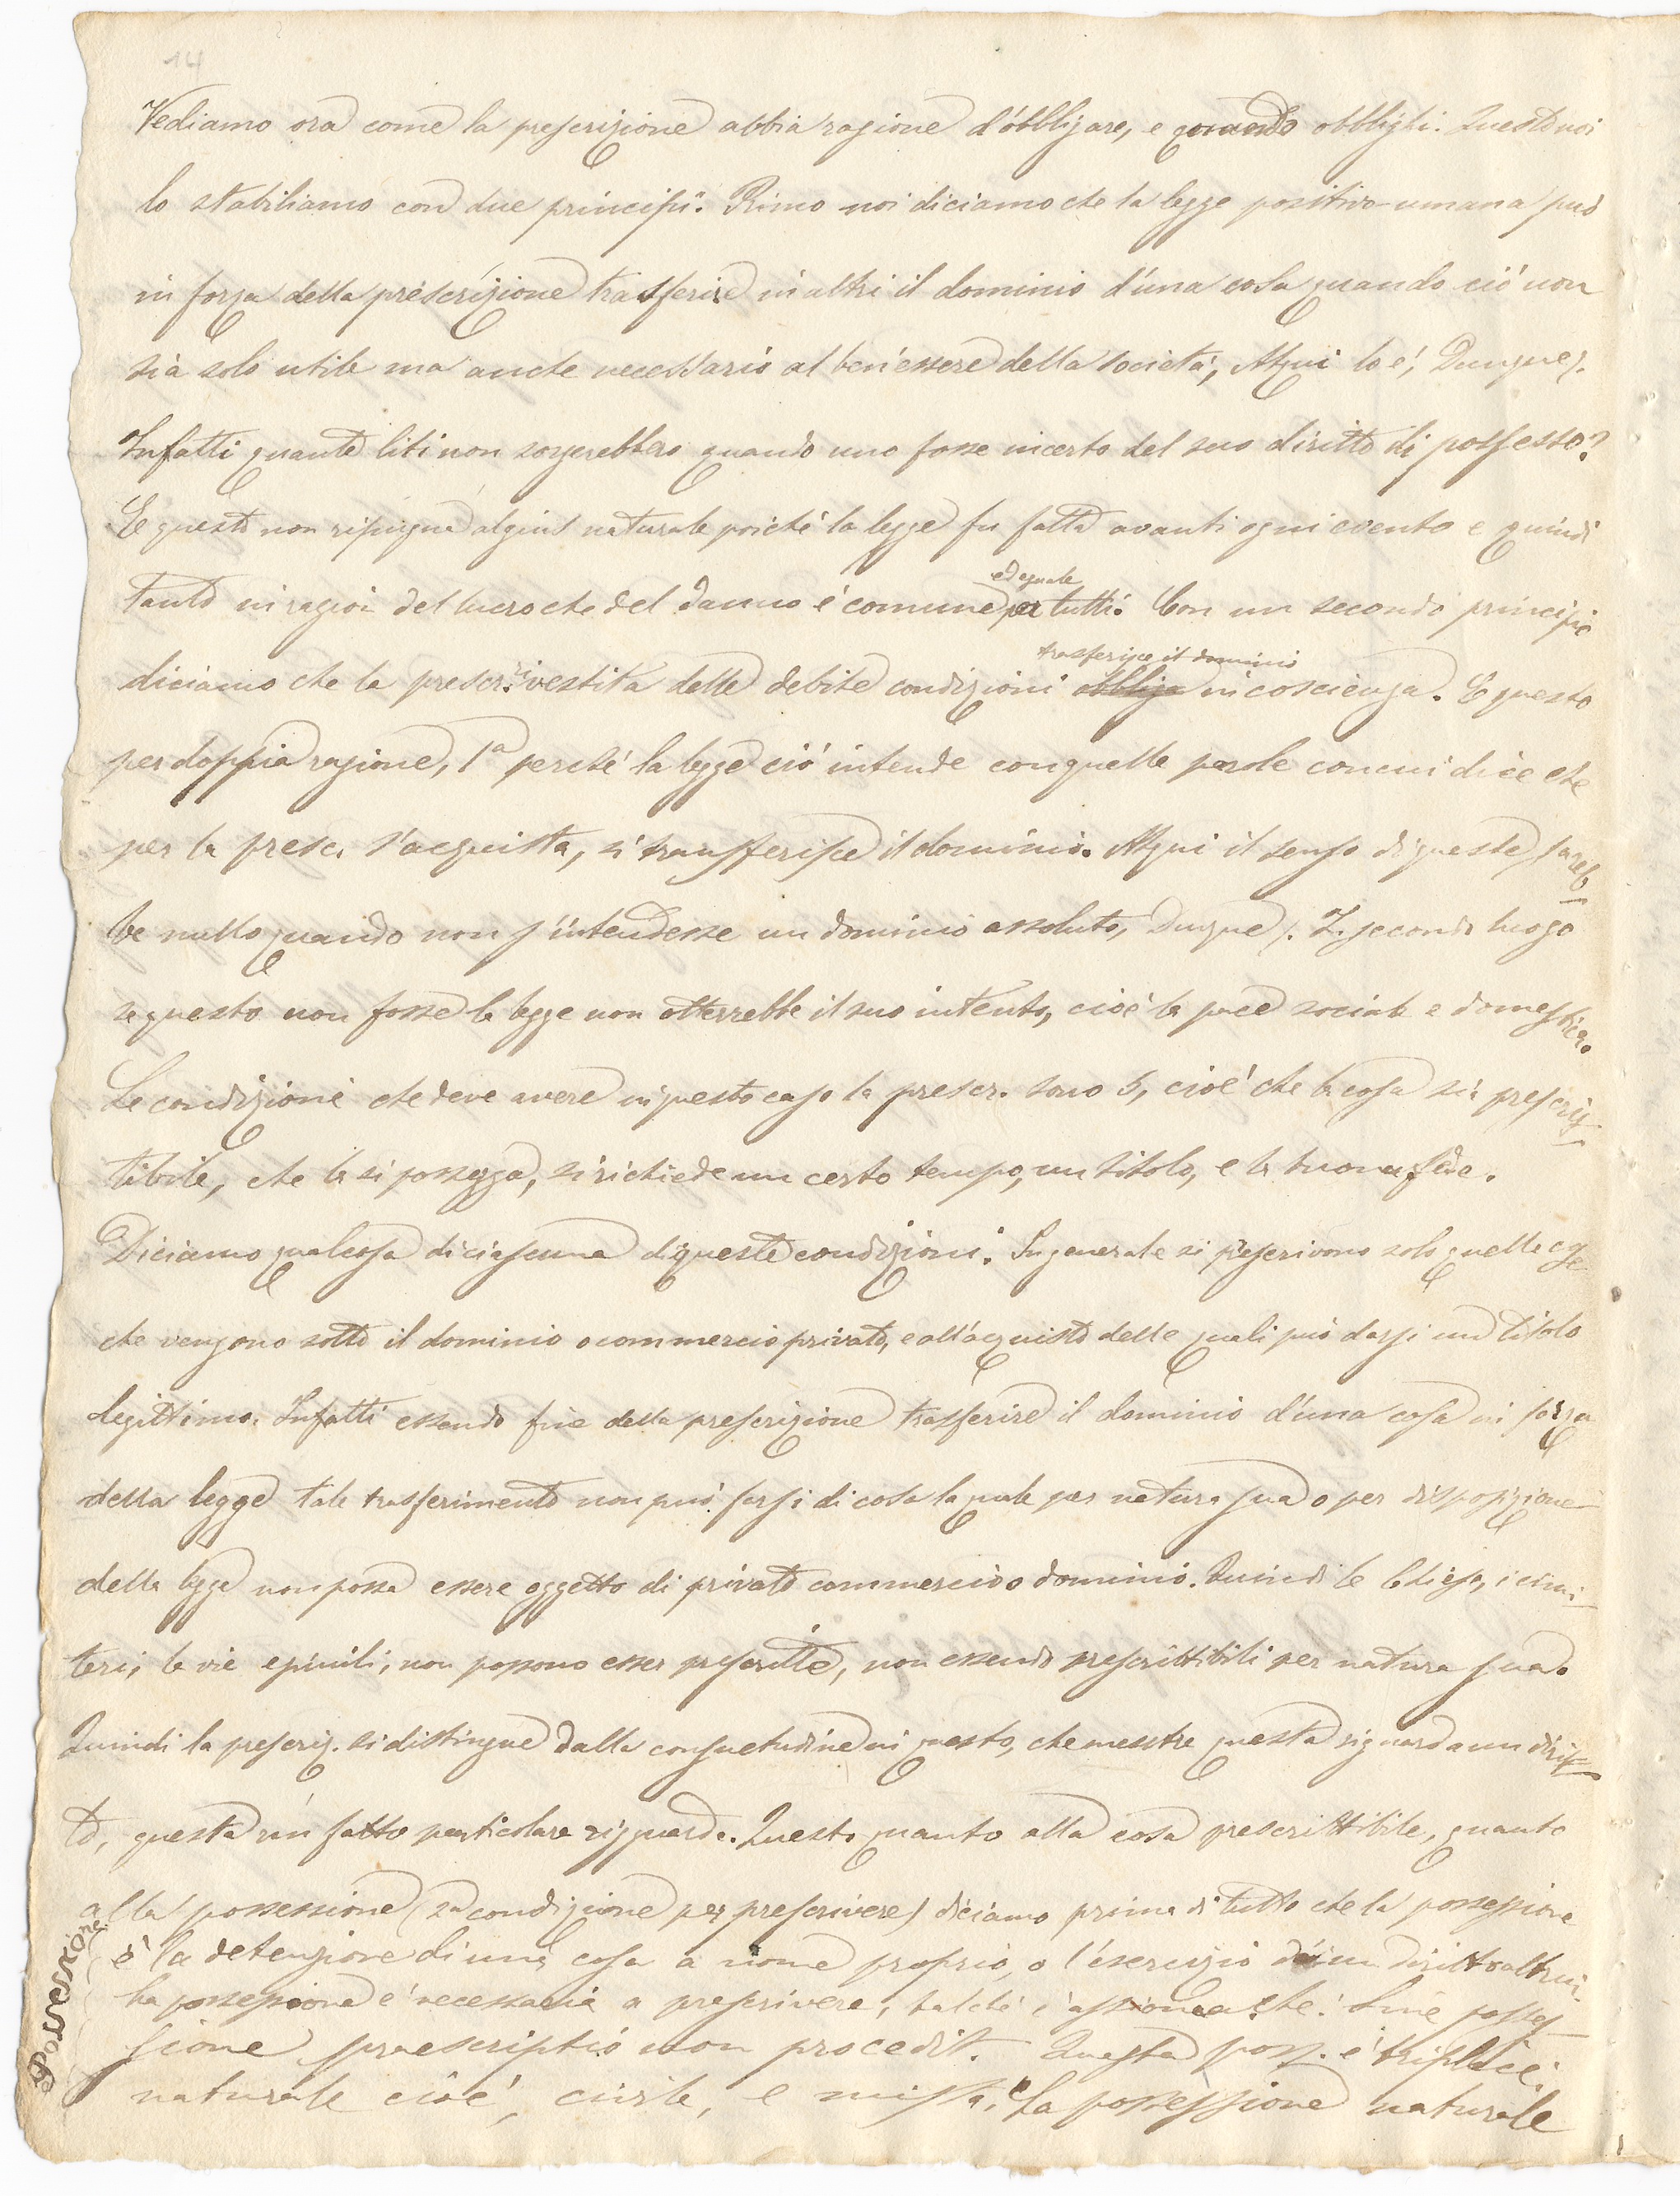 14
Vediamo ora come la prescrizione abbia ragione d'obbligare, e quando obblighi. Questo noi
lo stabiliamo con due principii. Primo noi diciamo che la legge positivo-umana può
in forza della prescrizione trasferire in altri il dominio d'una cosa quando ciò non
sia solo utile ma anche necessario al ben'essere della società; Atqui lo è; Dunque).
Infatti quante liti non sorgerebbero quando uno fosse incerto del suo diritto di possesso?
E questo non ripugna al gius naturale poiché la legge fu fatta avanti ogni evento e quindi
ed eguale
tanto in ragion del lucro che del danno è comune per tutti. Con un secondo principio
trasferisce il dominio
diciamo che la prescr. rivestita delle debite condizioni obbliga in coscienza. E questo
per doppia ragione, 1a perché la legge ciò intende con quelle parole con cui dice che
per la presc. s'acquista, si transferisce il dominio. Atqui il senso di queste sareb
be nullo quando non s'intendesse un dominio assoluto, Dunque). In secondo luogo
se questo non fosse la legge non otterrebbe il suo intento, cioè la pace sociale e domestica.
Le condizioni che deve avere in questo caso la prescr. sono 5, cioè che la cosa sia prescrit-
tibile, che la si possegga, si richiede un certo tempo, un titolo, e la buona fede.
Diciamo qualcosa di ciascuna di queste condizioni. In generale si prescrivono solo quelle cose
che vengono sotto il dominio o commercio privato, e all'acquisto delle quali può darsi un titolo
legittimo. Infatti essendo fine della prescrizione trasferire il dominio d'una cosa in forza
della legge tale trasferimento non può farsi di cosa la quale per natura sua o per disposizione
della legge non possa essere oggetto di privato commercio o dominio. Quindi le Chiese, i cimi-
teri, le vie e simili, non possono esser prescritte, non essendo prescrittibili per natura sua.
Quindi la prescriz. si distingue dalla consuetudine in questo, che mentre questa riguarda un dirit-
to, questa un fatto particolare risguarda. Questo quanto alla cosa prescrittibile, quanto
alla possessione (2a condizione per prescrivere) diciamo prima di tutto che la possessione
è la detenzione di una cosa a nome proprio, o l'esercizio di un diritto altrui.
La possessione è necessaria a prescrivere, talché è assioma che: Sine posses
sione praescriptio non procedit. Questa poss. è triplice:
naturale cioè, civile, e mista. La possessione naturale
Possessione